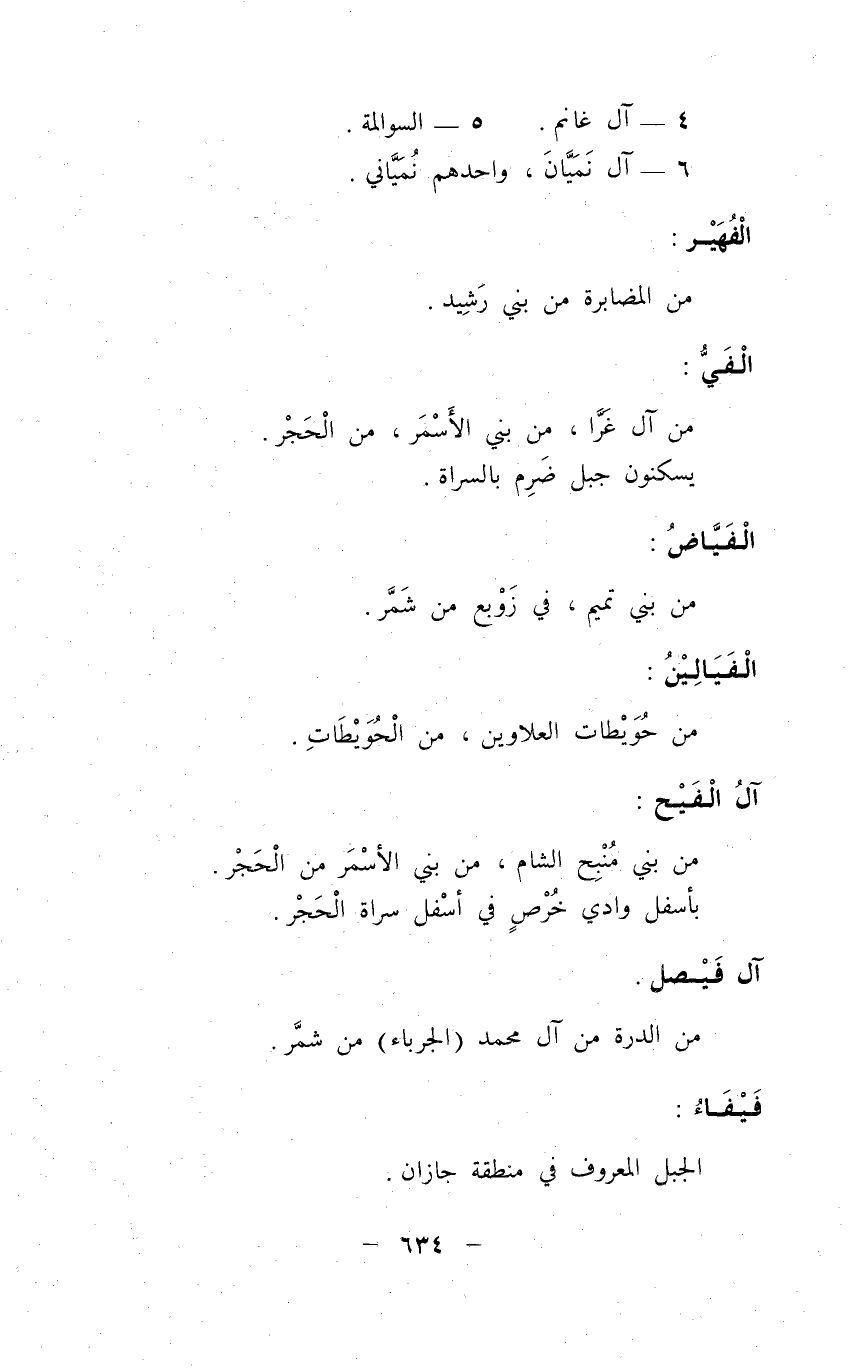 ٤ — آل غانم . ٥ — السوالمة .
٦ — آل نَمَيَّانَ ، واحدهم نُمَيَّاني .
الْفُهَيْـر :
من المضابرة من بني رَشِيد .
الْفَـيُّ :
من آل غَرَّا ، من بني الأَسْمَر ، من الْحَجْر .
يسكنون جبل ضَرِم بالسراة .
الْفَيَّـاضُ :
من بني تميم ، في زَوْبع من شَمَّر .
الْفَيَـالِيْنُ :
من حُوَيْطات العلاوين ، من الْحُوَيْطَاتِ .
آلُ الْفَيْـح :
من بني مُنْبِح الشام ، من بني الأسْمَر من الْحَجْر .
بأسفل وادي خُرْصٍ في أسْفل سراة الْحَجْر .
آل فَيْـصل .
من الدرة من آل محمد (الجرباء) من شمَّر .
فَيْفَـاءُ :
الجبل المعروف في منطقة جازان .
– ٦٣٤ –